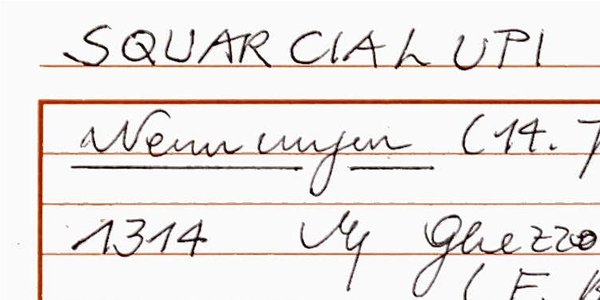 SQUARCIALUPI
Nennungen (14. J
1314 Ghezzo
( F. B